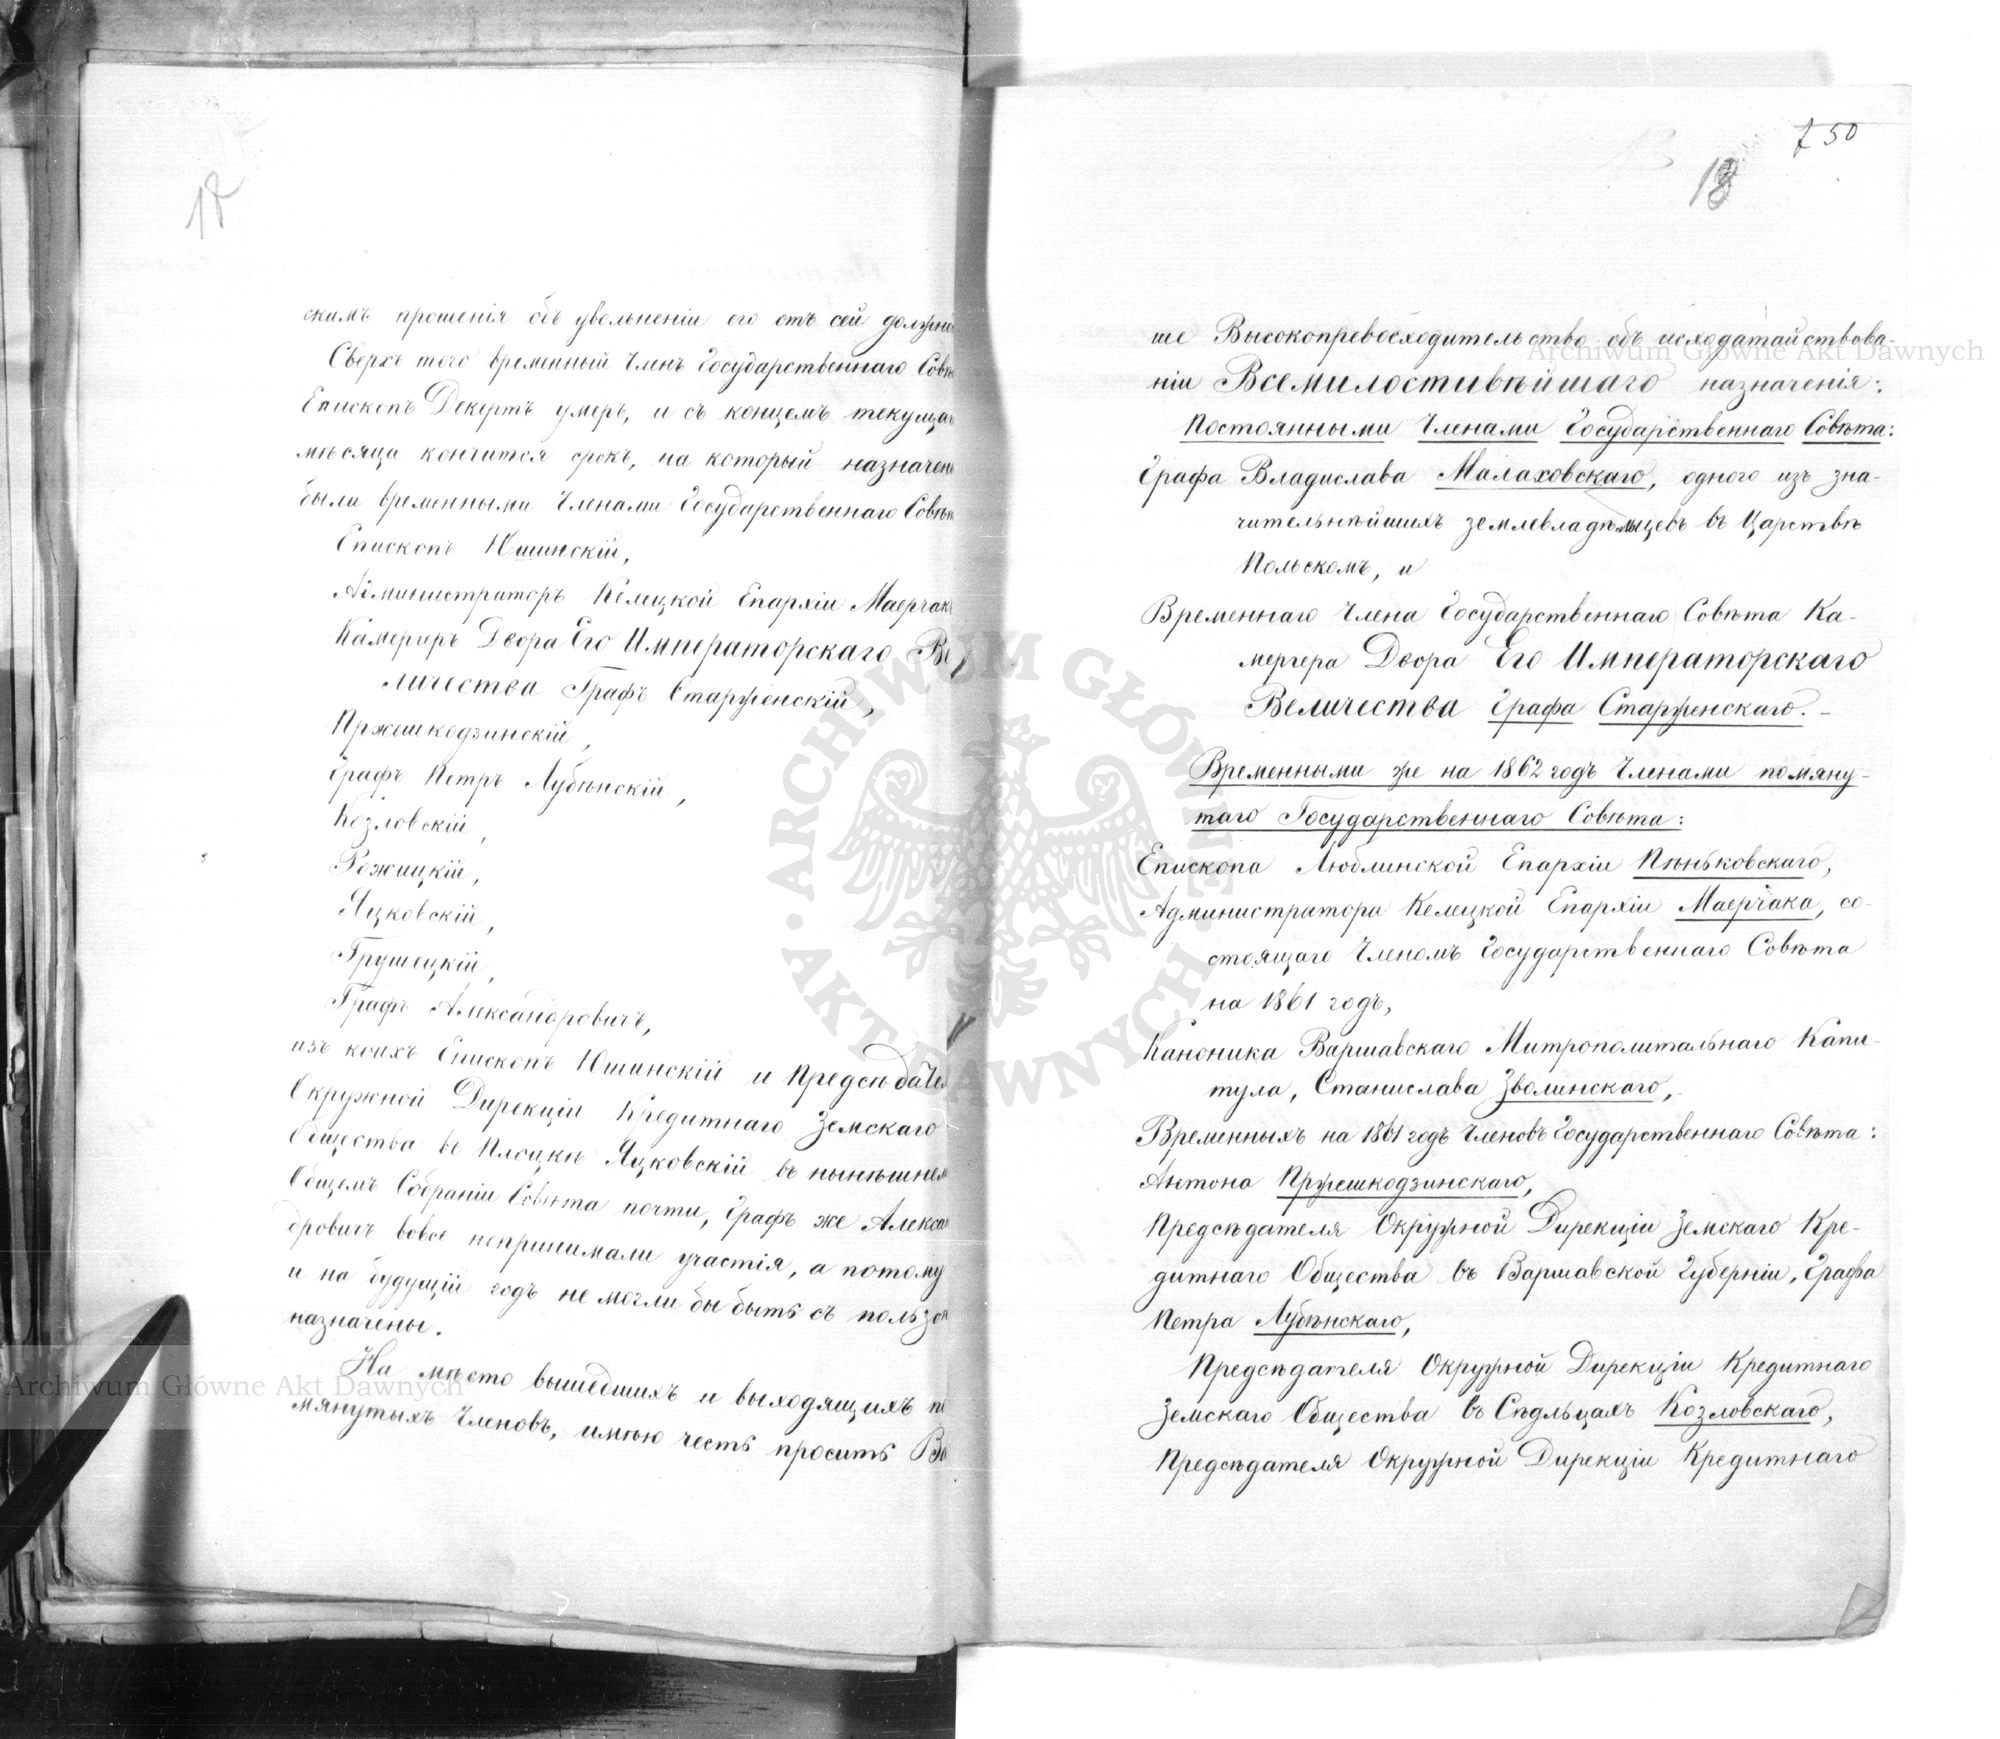 17
скимъ прошенія объ увольненіи его отъ сей должно
Сверхъ того временный Членъ Государственнаго Совѣ
Епископъ Декертъ умеръ, и съ концемъ текущаг
мѣсяца кончится срокъ, на который назначен
были временными Членами Государственнаго Совѣт
Епископъ Юшинскій,
Администраторъ Келецкой Епархіи Маерчак
Камергеръ Двора Его Императорскаго Ве
личества Графъ Старженскій,
Пржешкодзинскій,
Графъ Петръ Лубѣнскій,
Козловскій,
Рожицкій,
Яцковскій,
Грушецкій,
Графъ Александровичъ,
изъ коихъ Епископъ Юшинскій и Предсѣдател
Окружной Дирекціи Кредитнаго Земскаго
Общества въ Плоцкѣ Яцковскій въ нынѣшнем
Общемъ Собраніи Совѣта почти, Графъ же Алекса
дровичъ вовсе непринимали участія, а потому
и на будущій годъ не могли бы быть съ пользо
назначены.
На мѣсто вышедшихъ и выходящихъ по
мянутыхъ Членовъ, имѣю честь просить Ва
50
18
ше Высокопревосходительство объ исходатайствова-
ніи Всемилостивѣйшаго назначенія:
Постоянными Членами Государственнаго Совѣта:
Графа Владислава Малаховскаго, одного изъ зна-
чительнѣйшихъ землевладѣльцевъ въ Царствѣ
Польскомъ, и
Временнаго Члена Государственнаго Совѣта Ка-
мергера Двора Его Императорскаго
Величества Графа Старженскаго. -
Временными же на 1862 годъ Членами помяну-
таго Государственнаго Совѣта:
Епископа Люблинской Епархіи Пѣньковскаго,
Администратора Келецкой Епархіи Маерчака, со-
стоящаго Членомъ Государственнаго Совѣта
на 1861 годъ,
Каноника Варшавскаго Митрополитальнаго Капи-
тула, Станислава Зволинскаго,
Временныхъ на 1861 годъ Членовъ Государственнаго Совѣта:
Антона Пржешкодзинскаго,
Предсѣдателя Окружной Дирекціи Земскаго Кре-
дитнаго Общества въ Варшавской Губерніи, Графа
Петра Лубѣнскаго,
Предсѣдателя Окружной Дирекціи Кредитнаго
Земскаго Общества въ Сѣдльцахъ Козловскаго,
Предсѣдателя Окружной Дирекціи Кредитнаго
Archiwum Główne Akt Dawnych
Archiwum Główne Akt Dawnych
ARCHIWUM GŁÓWNE · AKT DAWNYCH ·